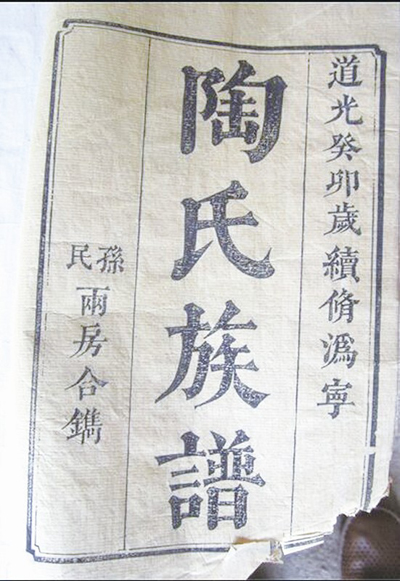 道光癸卯歲續脩溈寧
陶氏族譜
孫民兩房合鐫